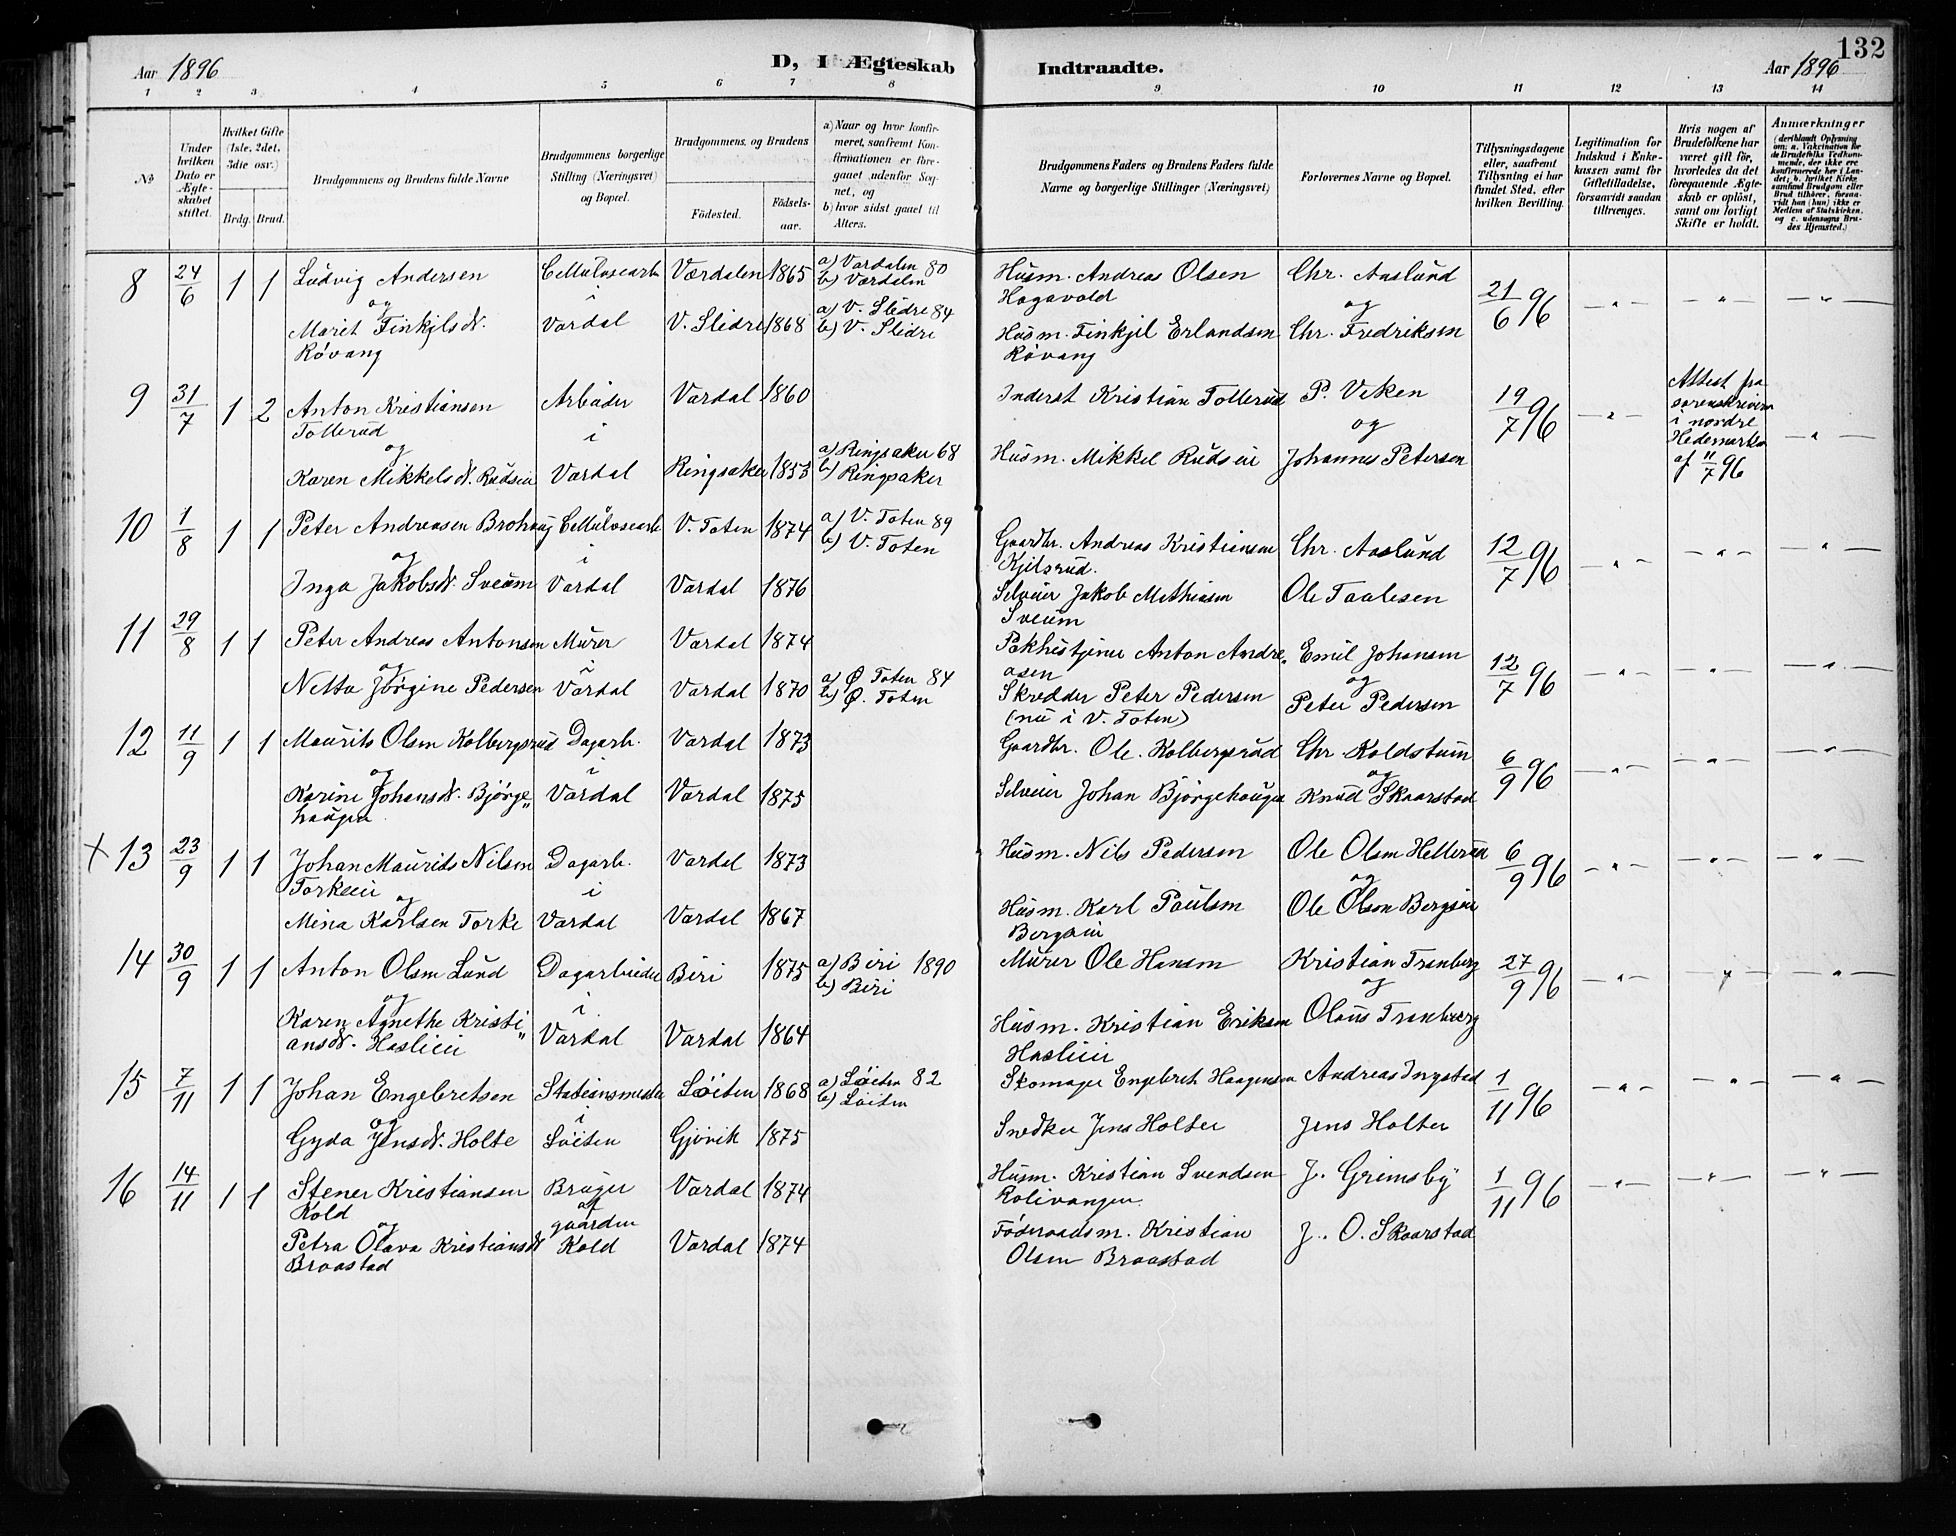 132
Aar 1896
D, I Ægteskab Indtraadte.
Aar 1896
1 2 3 4 5 6 7 8 9 10 11 12 13 14
No
Under hvilken Dato er Ægteskabet stiftet.
Hvilket Gifte (1ste, 2det, 3die osv.)
Brdg. Brud.
Brudgommens og Brudens fulde Navne
Brudgommens borgerlige Stilling (Næringsvei) og Bopæl.
Brudgommens, og Brudens
Födested. Födsels-aar.
a) Naar og hvor konfirmeret, saafremt Konfirmationen er foregaaet udenfor Sognet, og
b) hvor sidst gaaet til Alters.
Brudgommens Faders og Brudens Faders fulde Navne og borgerlige Stillinger (Næringsvei)
Forlovernes Navne og Bopæl.
Tillysningsdagene eller, saafremt Tillysning ei har fundet Sted, efter hvilken Bevilling.
Legitimation for Indskud i Enkekassen samt for Giftetilladelse, forsaavidt saadan tiltrænges.
Hvis nogen af Brudefolkene har været gift för, hvorledes da det foregaaende Ægteskab er oplöst, samt om lovligt Skifte er holdt.
Anmærkninger (deriblandt Oplysning om: a. Vakcination for de Brudefolks Vedkommende, der ikke ere konfirmerede her i Landet; b. hvilket Kirkesamfund Brudgom eller Brud tilhörer, forsaavidt han (hun) ikke er Medlem af Statskirken, og c. udensogns Brudes Hjemsted.)
8 24/6 1 1 Ludvig Andersen Cellulosearb. Værdalen 1865 a) Værdalen 80 Husm. Andreas Olsen Chr. Aaslund 21/6 96 - „ - - „ - - „ -
b) Værdalen Hagavold
og i og
Marit Finkjelsdt. Vardal V. Slidre 1868 a) V. Slidre 84 Husm. Finkjel Erlandsen Chr. Fredriksen
Røvang b) V. Slidre Røvang
9 31/7 1 2 Anton Kristiansen Arbeider Vardal 1860 Inderst Kristian Tollerud P. Veken 19/7 96 - „ - Attest fra sorenskriveren i nordre Hedemarken af 11/7 96 - „ -
Tollerud
og i og
Karen Mikkelsdt. Rudseie Vardal Ringsaker 1853 a) Ringsaker 68 Husm. Mikkel Rudseie Johannes Petersen
b) Ringsaker
10 1/8 1 1 Peter Andreasen Brohaug Cellulosearb. V. Toten 1874 a) V. Toten 89 Gaardbr. Andreas Kristiansen Chr. Aaslund 12/7 96 - „ - - „ - - „ -
b) V. Toten Kjilsrud.
og i
Inga Jakobsdt. Sveum Vardal Vardal 1876 Selveier Jakob Mathiasen Ole Taalesen
Sveum
11 29/8 1 1 Peter Andreas Antonsen Murer Vardal 1874 Pakhustjener Anton Andre„ Emil Johansen 12/7 96 - „ - - „ - - „ -
asen
og i og
Netta Jørgine Pedersen Vardal Vardal 1870 a) Ø. Toten 84 Skrædder Peter Pedersen Peter Pedersen
b) Ø. Toten (nu i V. Toten)
12 11/9 1 1 Maurits Olsen Kolbergsrud Dagarb. Vardal 1873 Gaardbr. Ole Kolbergsrud Chr. Koldstuen 6/9 96 - „ - - „ - - „ -
og i og
Karine Johansdt. Bjørge„ Vardal Vardal 1875 Selveier Johan Bjørgehaugen Knud Skaarstad
haugen
× 13 23/9 1 1 Johan Maurits Nilsen Dagarb. Vardal 1873 Husm. Nils Pedersen Ole Olsen Hellerud 6/9 96 - „ - - „ - - „ -
Torkeeie
og i og
Mina Karlsen Torke Vardal Vardal 1867 Husm. Karl Paulsen Ole Olsen Bergseie
Bergseie
14 30/9 1 1 Anton Olsen Lund Dagarbeider Biri 1875 a) Biri 1890 Murer Ole Hansen Kristian Tranberg 27/9 96 - „ - - „ - - „ -
b) Biri
og i og
Karen Agnethe Kristi„ Vardal Vardal 1864 Husm. Kristian Eriksen Olaus Tranberg
ansdt. Haslieie Haslieie
15 7/11 1 1 Johan Engebretsen Stationsmester Løiten 1868 a) Løiten 82 Skomager Engebret Haagensen Andreas Ingstad 1/11 96 - „ - - „ - - „ -
b) Løiten
og i
Gyda Jensdt. Holte Løiten Gjøvik 1875 Snedker Jens Holter Jens Holter
16 14/11 1 1 Stener Kristiansen Bruger Vardal 1874 Husm. Kristian Svendsen J. Grimsby 1/11 96 - „ - - „ - - „ -
Kold af Kolivangen
og gaarden
Petra Olava Kristiansdt Kold Vardal 1874 Føderaadsm. Kristian J. O. Skaarstad
Braastad Olsen Braastad